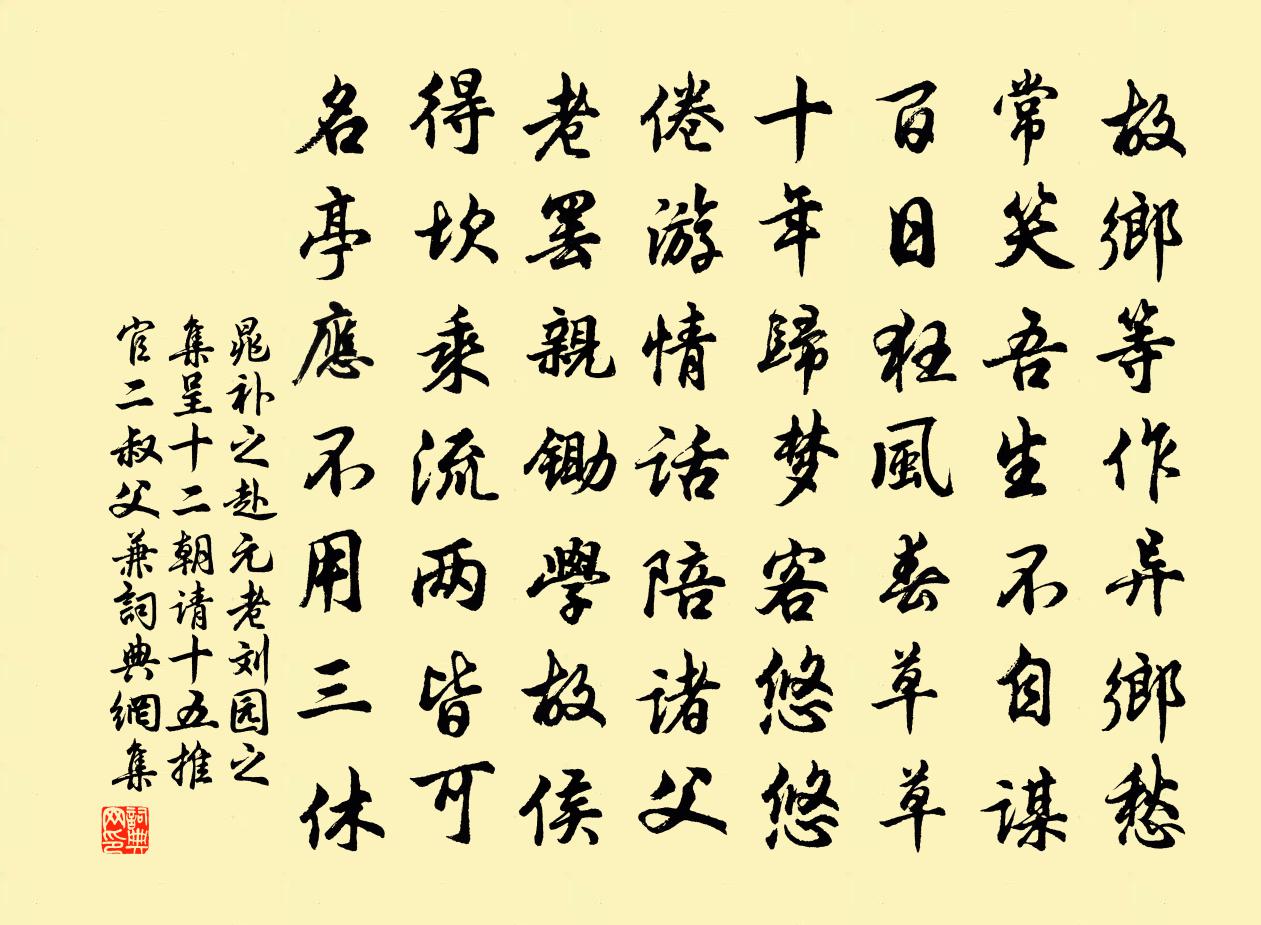 故鄉等作异鄉愁
常笑吾生不自謀
百日狂風春草草
十年歸梦客悠悠
倦游情話陪诸父
老罢親鋤學故侯
得坎乘流两皆可
名亭應不用三休
晁补之赴元老刘园之
集呈十二朝请十五推
官二叔父兼詞典網集
詞典
网印